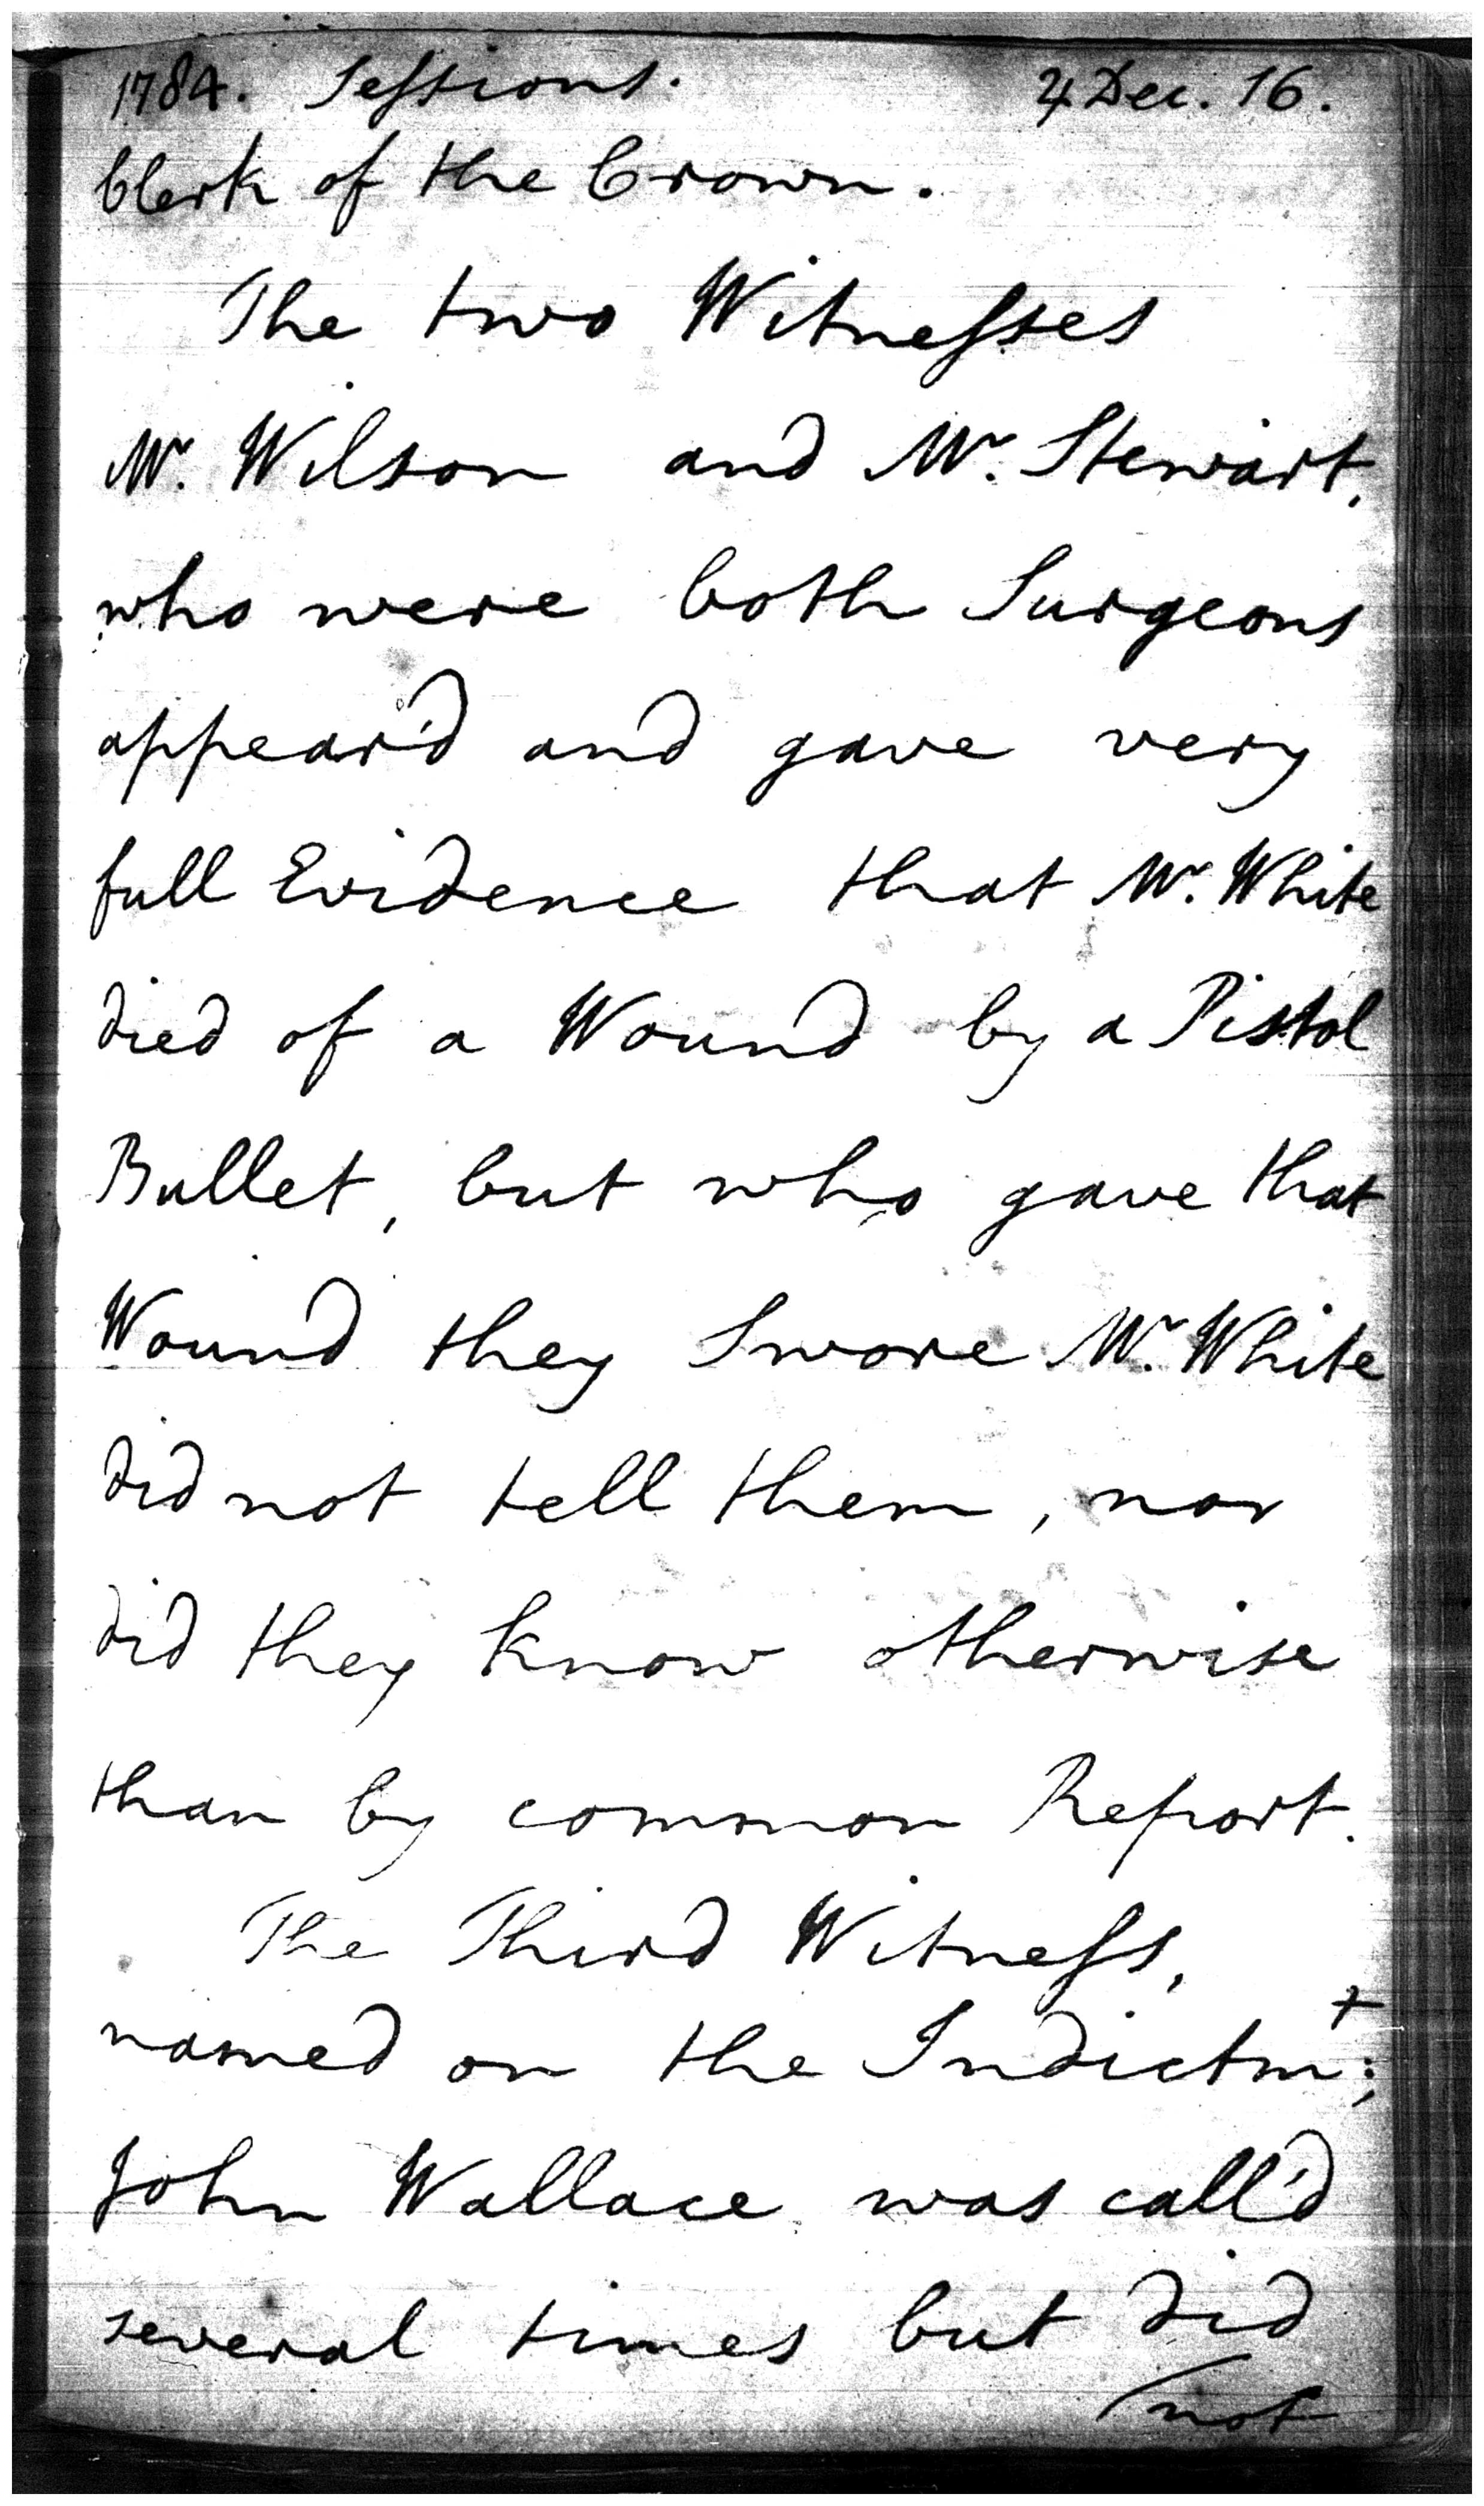 1784. Seſsions. 4 Dec. 16.
Clerk of the Crown.
The two Witneſses
Mr. Wilson and Mr. Stewart,
who were both Surgeons
appear'd and gave very
full Evidence that Mr. White
died of a Wound by a Pistol
Bullet, but who gave that
Wound they Swore Mr. White
did not tell them, nor
did they know otherwise
than by common Report.
The Third Witneſs,
named on the Indictmt;
John Wallace was call'd
several times but did
/not